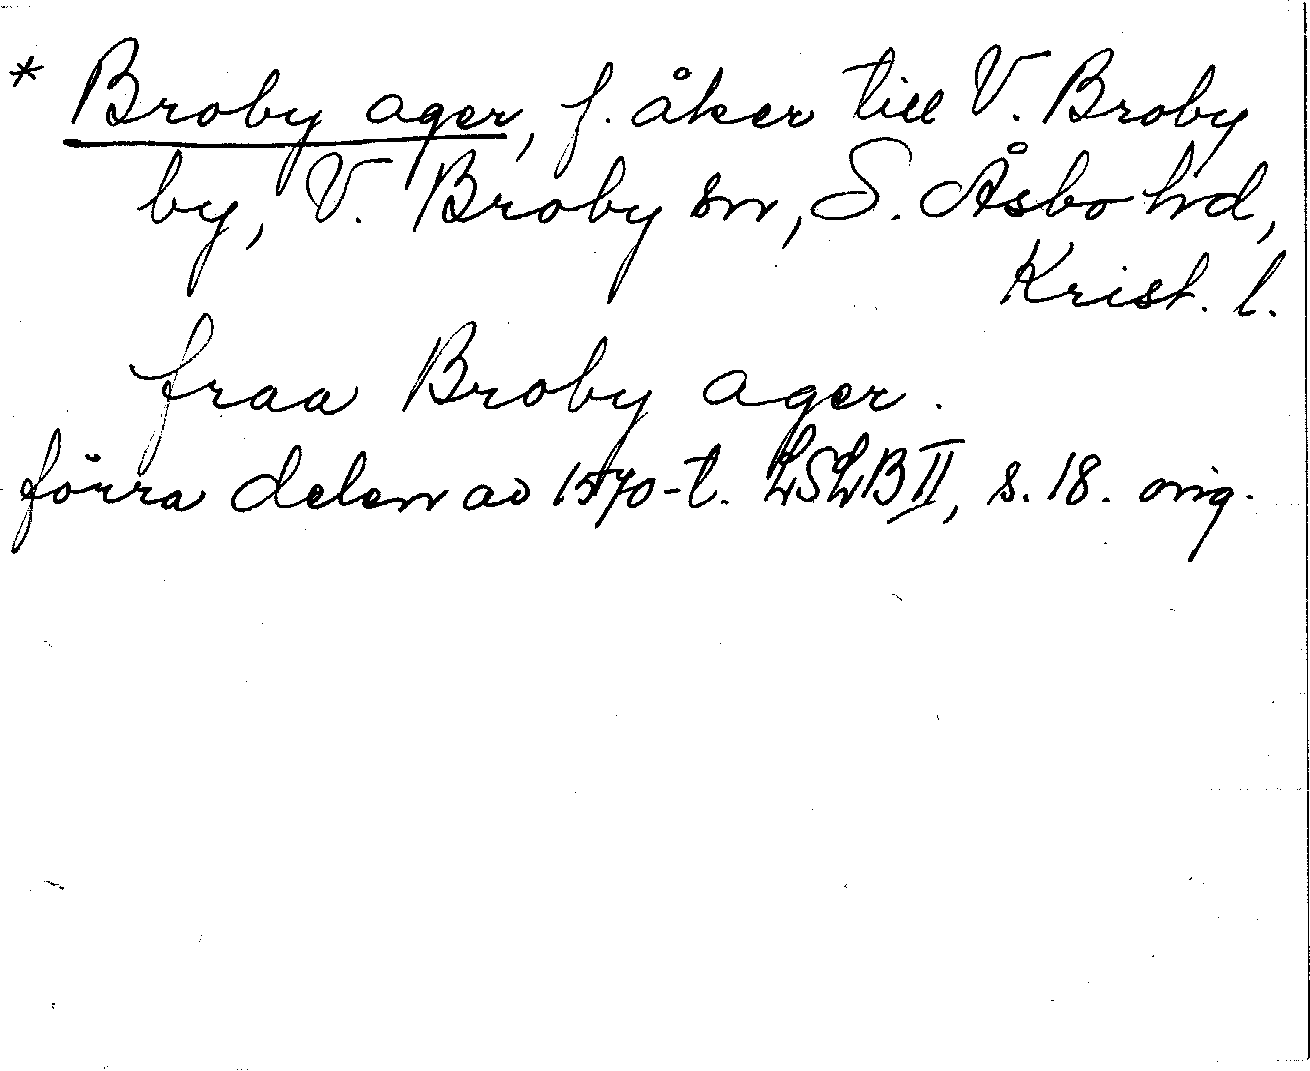 * Broby ager, f. åker till V. Broby
by, V. Broby sn, S. Åsbo hd,
Krist. l.
fraa Broby ager.
förra delen av 1570-t. LSLB II, s. 18. orig.